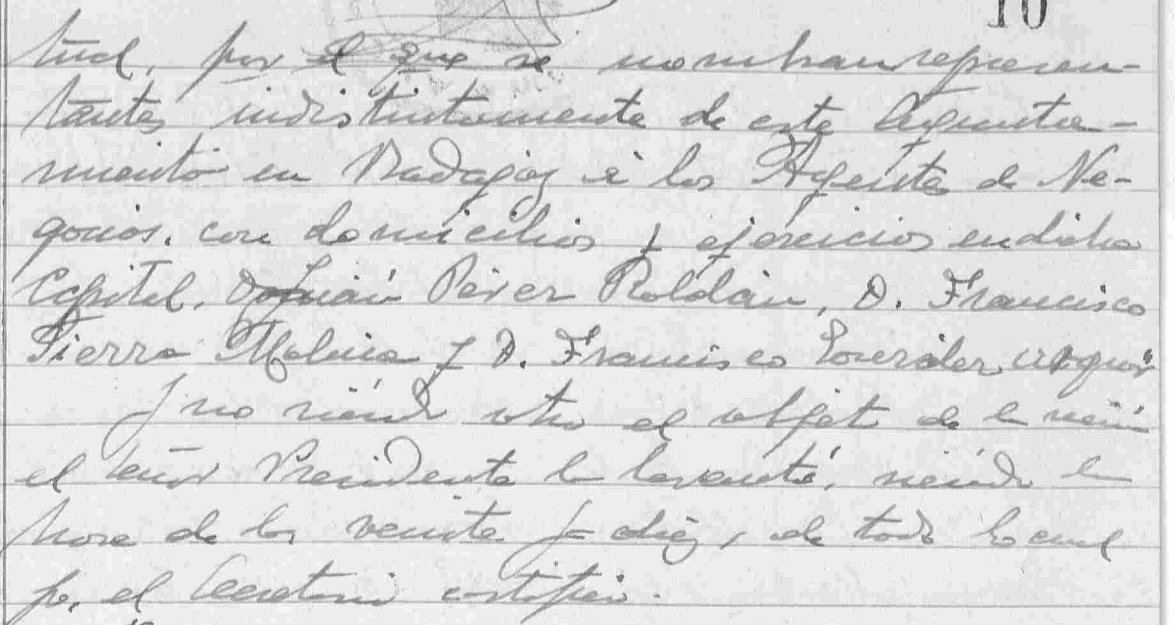 10
tud, por el que se nombran represen-
tantes indistintamente de este Ayunta-
miento en Badajoz a los Agentes de Ne-
gocios, con domicilios y ejercicios en dicha
Capital, D. Julián Pérez Roldán, D. Francisco
Sierra Molina y D. Francisco González
Y no siendo otro el objeto de la sesión
el señor Presidente la levantó, siendo la
hora de las veinte y diez, de todo lo cual
yo, el Secretario certifico.